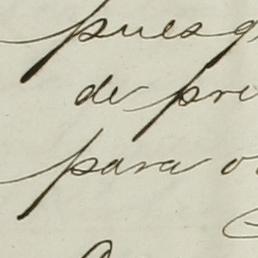 pues q
de pri
para o